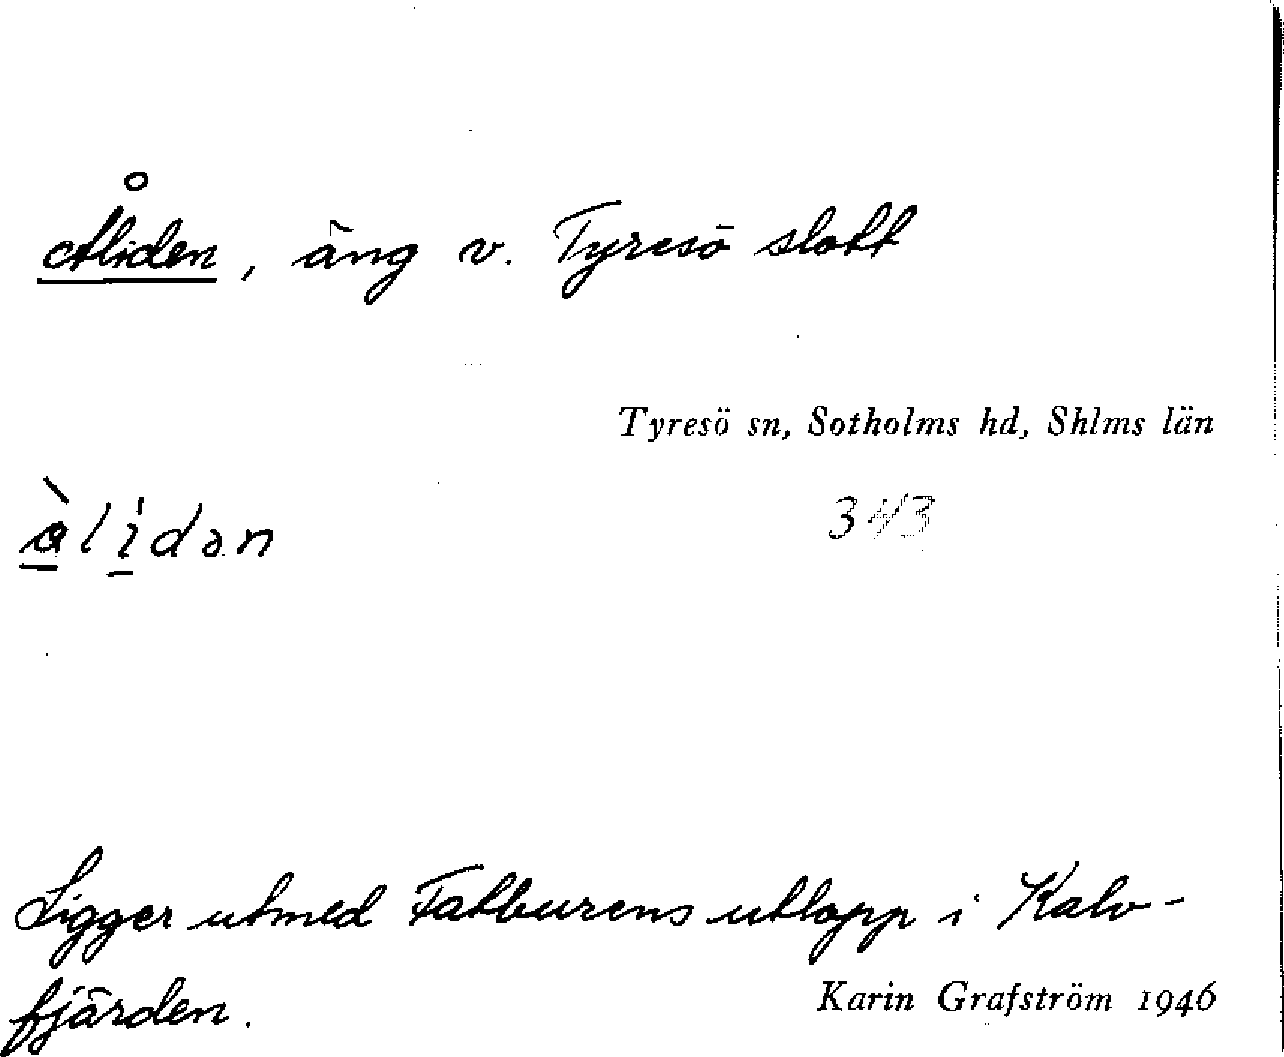 Åliden, äng v. Tyresö slott
Tyresö sn, Sotholms hd, Shlms län
343
Ligger utmed Fatburens utlopp i Kalv-
fjärden.
Karin Grafström 1946